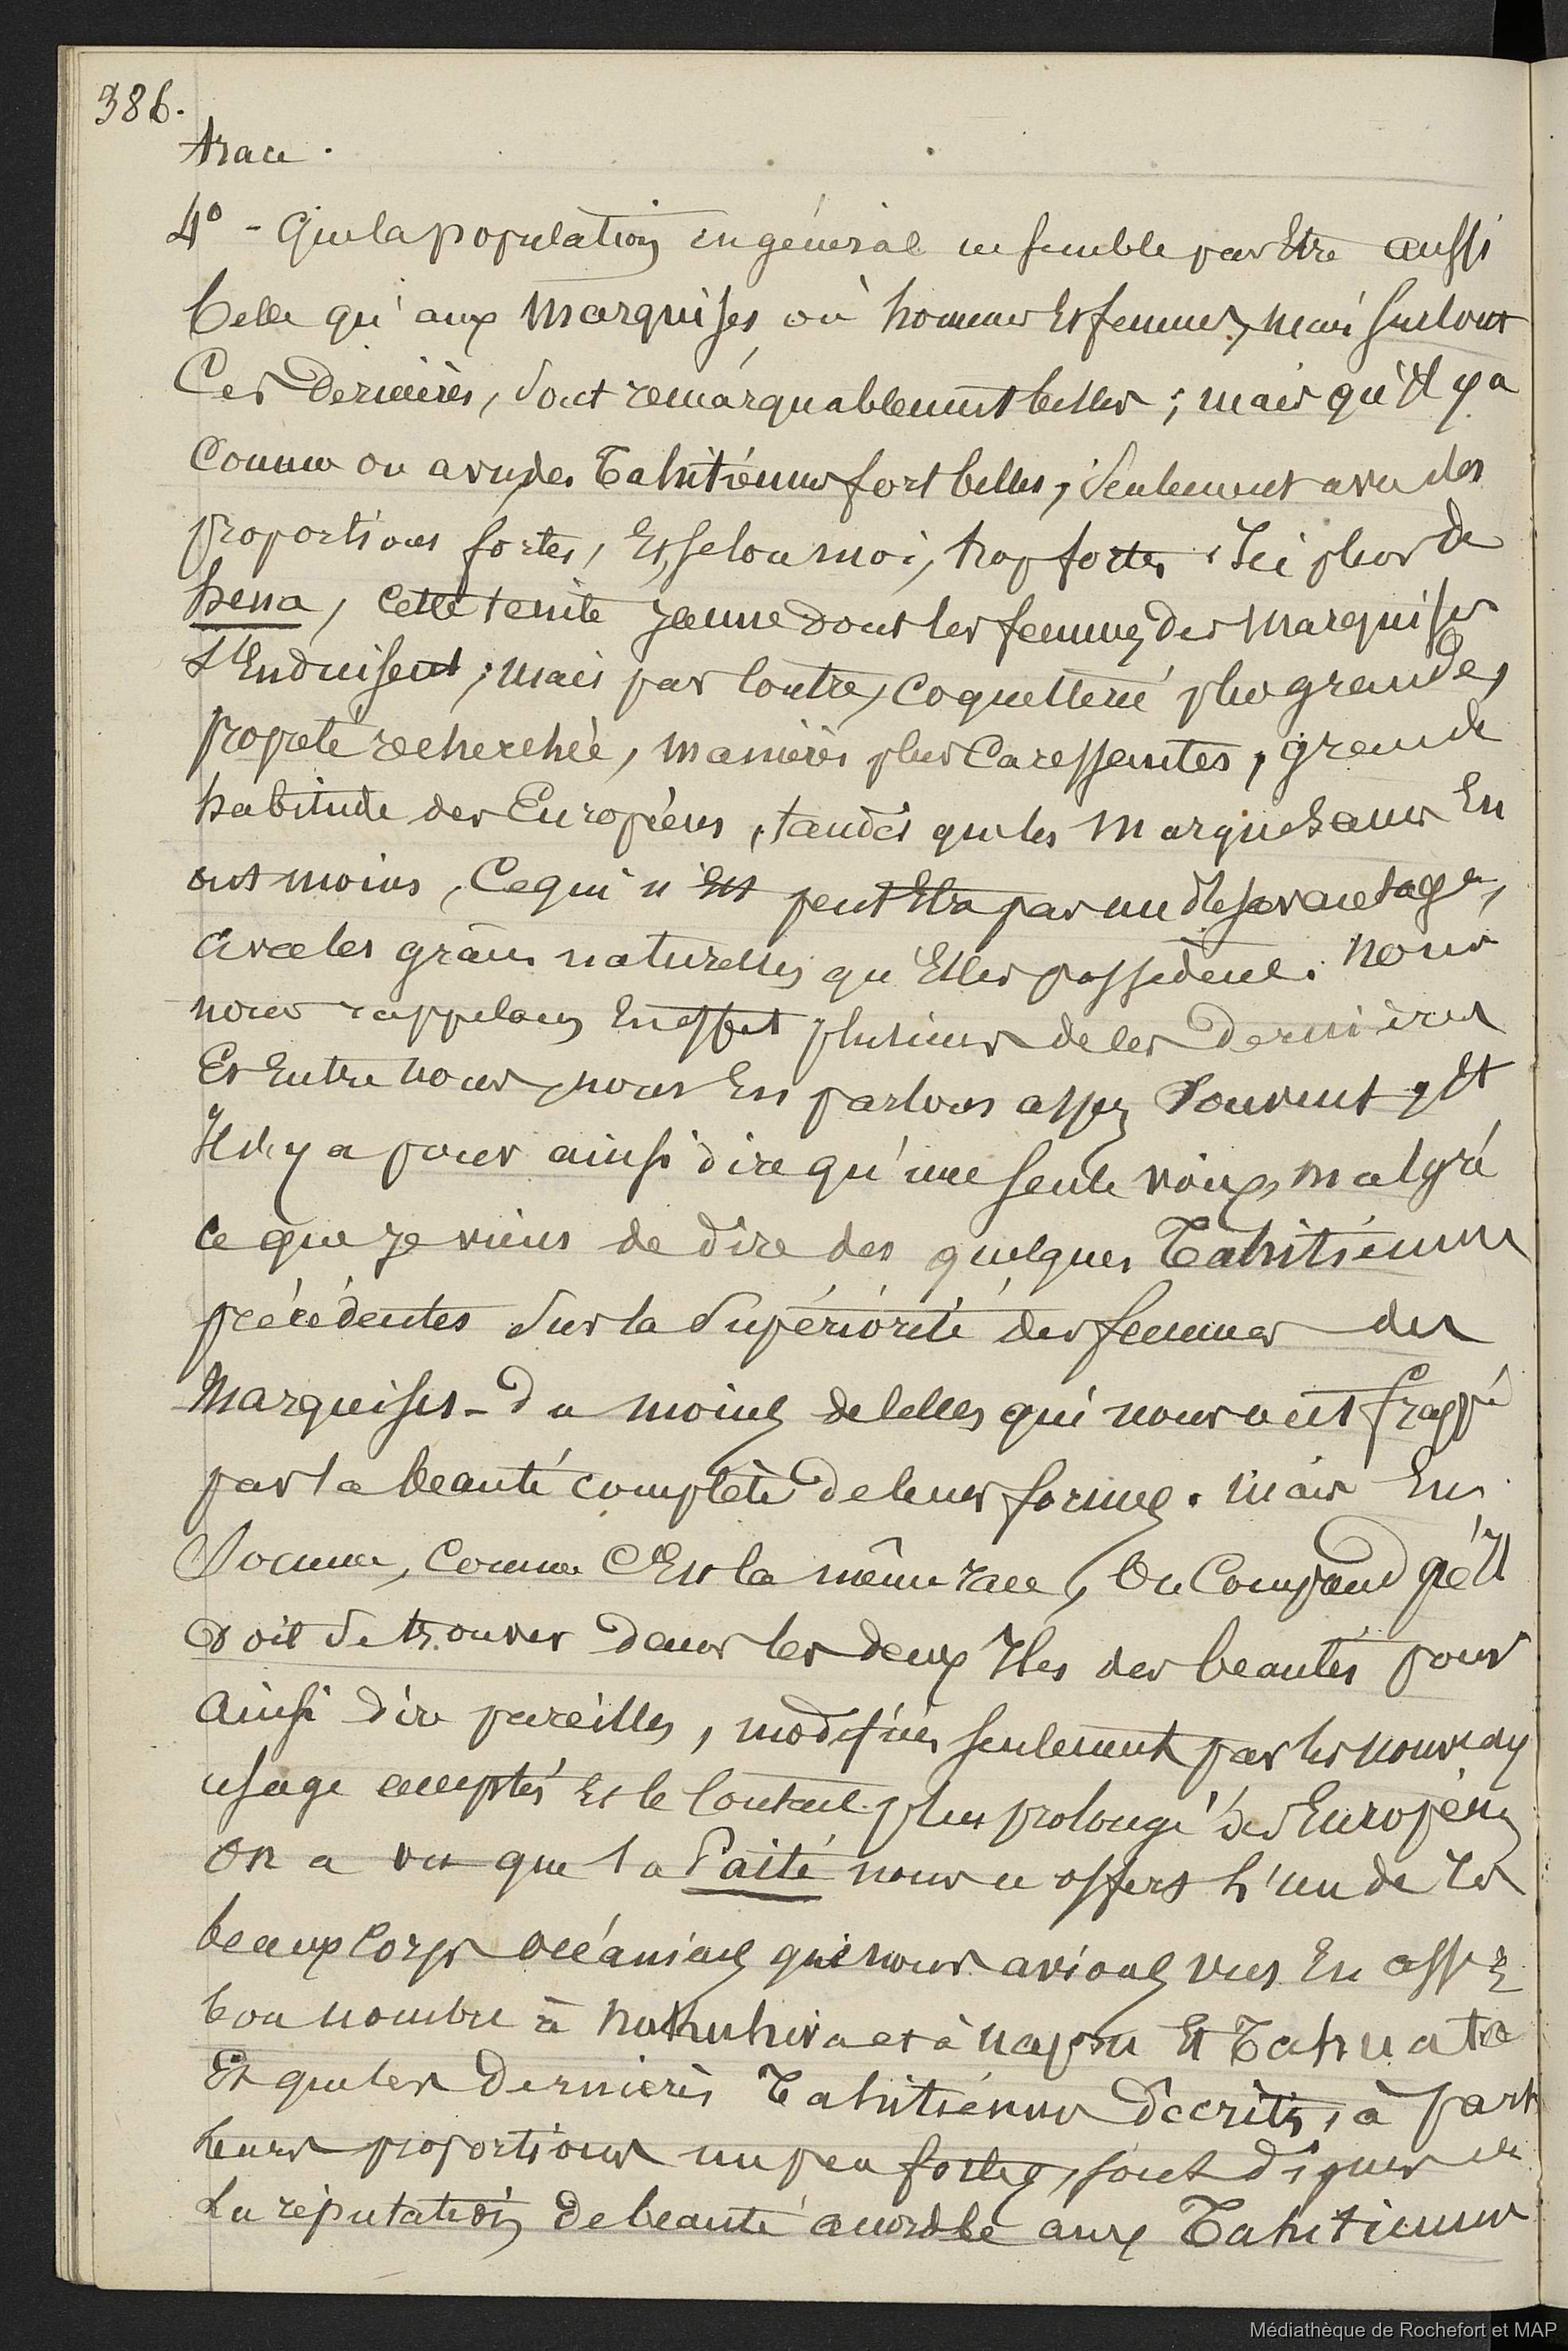 386.
trace.
4° - Que la population en général ne semble pas Etre aussi
belle qu'aux Marquises, où hommes Et femmes, mais surtout
Ces Dernières, sont remarquablement belles ; mais qu'Il y a
Comme on a vu, des Tahitiennes fort belles, seulement avec des
proportions fortes, Et, selon moi, trop fortes. Ici plus de
hena, cette teinte jaune dont les femmes des Marquises
s'Enduisent ; mais par contre, coquetterie plus grande,
propreté recherchée, manières plus Caressantes, grande
habitude des Européens, tandis que les Marquesanes En
ont moins, Ce qui n'Est peut Etre pas un désavantage,
avec les grâces naturelles qu'Elles possèdent. Nous
nous rappelons En effet plusieurs de ces Dernières
Et Entre nous, nous En parlons assez Souvent, Et
Il n'y a pour ainsi dire qu'une seule voix, malgré
ce que je viens de dire des quelques Tahitiennes
précédentes sur la Supériorité des femmes des
Marquises - Du moins de celles qui nous ont frappé
par la beauté complète de leurs formes. Mais En
Somme, Comme C'Est la même race, On Comprend qu'Il
doit se trouver Dans les deux Iles des beautés pour
ainsi dire pareilles, modifiées seulement par les nouveaux
usages acceptés Et le Contact plus prolongé des Européens
On a vu que la Païté nous a offert l'un de ces
beaux Corps Océaniens que nous avions vus En assez
bon nombre à Nukuhiva et à Uapou Et Tahuata
Et que les Dernières Tahitiennes Décrites, à part
leurs proportions un peu fortes, sont Dignes de
La réputation De beauté accordée aux Tahitiennes
Médiathèque de Rochefort et MAP